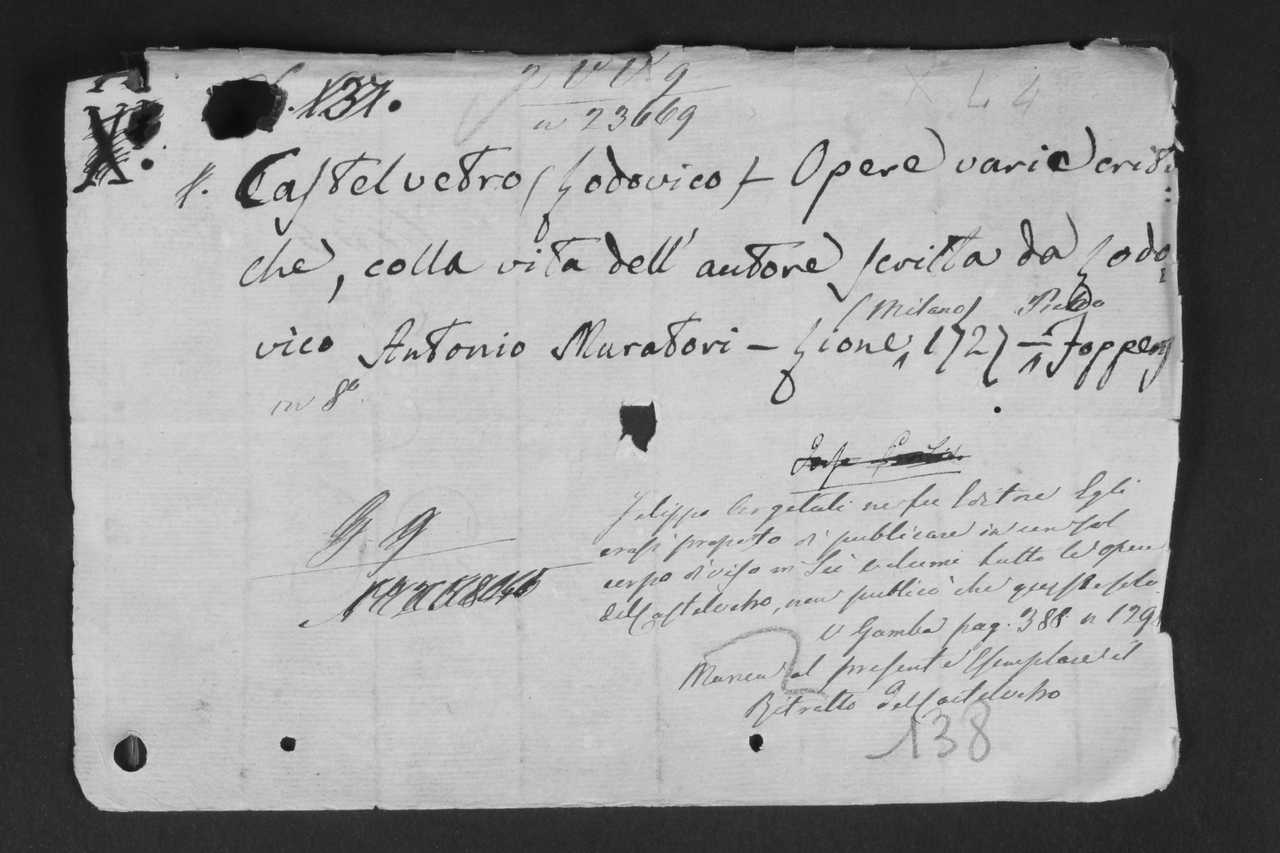 X.
137.
n 23669
X L 4
Castelvetro (Lodovico) Opere varie criti:
che, colla vita dell'autore scritta da Lodo
vico Antonio Muratori – Lione, 1727 – Foppens
(Milano) Pietro
in 8°.
Filippo Argelati ne fu Editore Egli
erasi proposto di publicare in un sol
corpo diviso in sei volumi tutte le opere
del Castelvetro, non publicò che questo solo
V Gamba pag. 388 n 129
Manca al presente Esemplare il
Ritratto del Castelvetro
G g
138